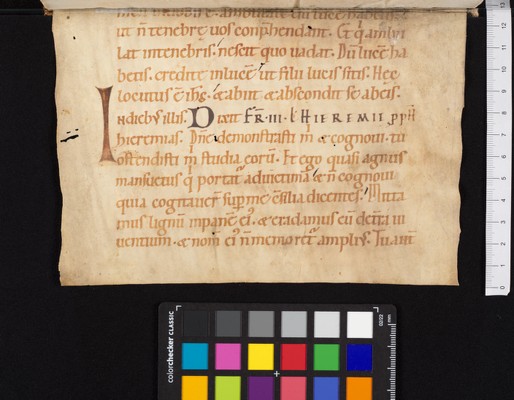 ut n̄ tenebrę vos conp̄hendant. Et q̇ ambu
lat intenebris. nescit quo uadat. Dū lucē ha
betis. credite inlucē ut filii lucis sitis. Hęc
locutus ē ih̄s. & abiit & abscondit se abeis.
Indieb; illis. Dixit FR̄. III. L̄ HIEREMIE pph̄
hieremias. Dn̄e demonstrasti m̄ & cognoui. tu
ostendisti m̄ studia eorū. Et ego quasi agnus
mansuetus q̇ portat᷑ aduictimā & n̄ cognoui
quia cogitauer̄ sup me c̄silia dicentes. Mitta
mus lignū inpanē ei᷒. & eradamus eū deťra ui
uentium. & nom̄ ei᷒ n̄ memoret᷑ amplius. Tu aut̄
colorchecker CLASSIC